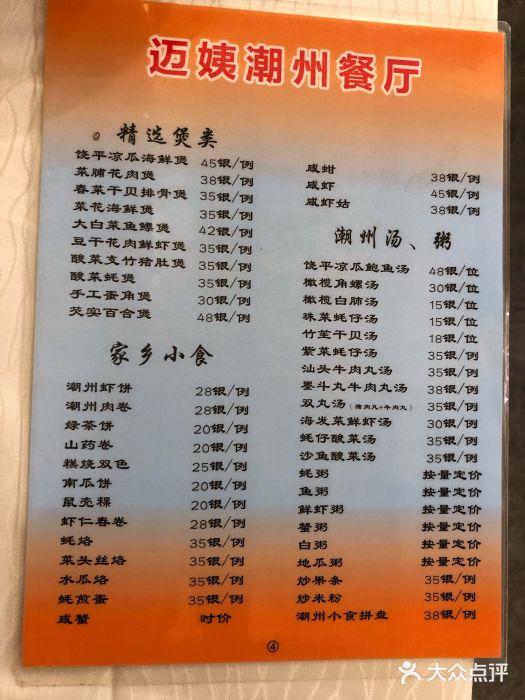 迈姨潮州餐厅
精选煲类
饶平凉瓜海鲜煲 45银/例
菜脯花肉煲 38银/例
春菜干贝排骨煲 35银/例
菜花海鲜煲 35银/例
大白菜鱼螺煲 42银/例
豆干花肉鲜虾煲 35银/例
酸菜支竹猪肚煲 35银/例
酸菜蚝煲 35银/例
手工蛋角煲 30银/例
芡实百合煲 48银/例
家乡小食
潮州虾饼 28银/例
潮州肉卷 28银/例
绿茶饼 20银/例
山药卷 20银/例
糕烧双色 25银/例
南瓜饼 20银/例
鼠壳粿 20银/例
虾仁春卷 28银/例
蚝烙 35银/例
菜头丝烙 35银/例
水瓜烙 35银/例
蚝煎蛋 35银/例
咸蟹 时价
咸蚶 38银/例
咸虾 45银/例
咸虾姑 38银/例
潮州汤、粥
饶平凉瓜鲍鱼汤 48银/位
橄榄角螺汤 30银/位
橄榄白肺汤 15银/位
珠菜蚝仔汤 15银/位
竹笙干贝汤 18银/位
紫菜蚝仔汤 35银/例
汕头牛肉丸汤 35银/例
墨斗丸牛肉丸汤 38银/例
双丸汤(猪肉丸+牛肉丸) 35银/例
海发菜鲜虾汤 30银/例
蚝仔酸菜汤 35银/例
沙鱼酸菜汤 35银/例
蚝粥 按量定价
鱼粥 按量定价
鲜虾粥 按量定价
蟹粥 按量定价
白粥 按量定价
地瓜粥 按量定价
炒果条 35银/例
炒米粉 35银/例
潮州小食拼盘 38银/例
④
大众点评